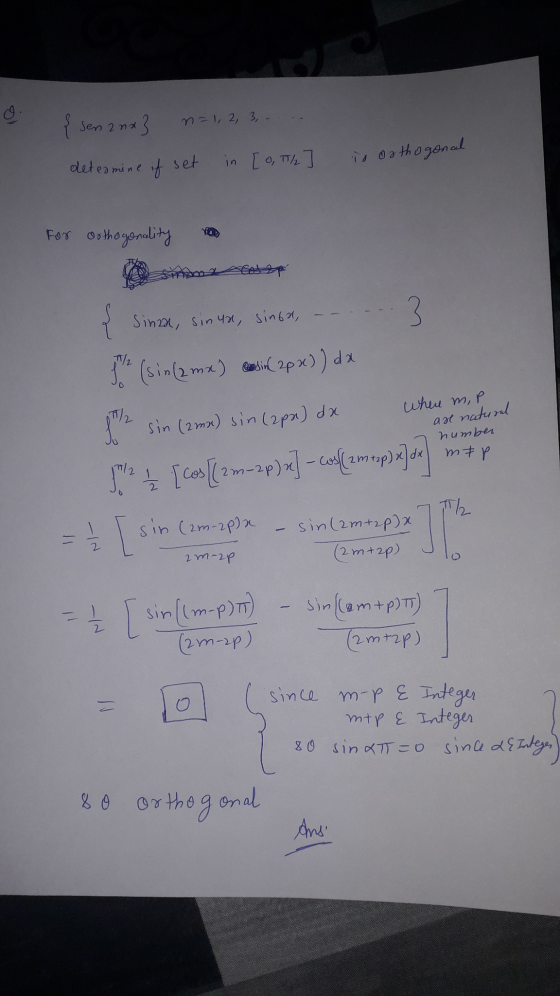 Q. { sen 2nx } n = 1, 2, 3, . ...
determine if set in [0, π/2] is orthogonal
For orthogonality
{ sin2x, sin4x, sin6x, -- ...... }
∫₀^π/2 (sin(2mx) sin(2px)) dx
∫₀^π/2 sin(2mx) sin(2px) dx where m, p are natural number m ≠ p
∫₀^π/2 1/2 [cos[(2m-2p)x] - cos[(2m+2p)x] dx]
= 1/2 [ sin (2m-2p)x / 2m-2p - sin(2m+2p)x / (2m+2p) ] |₀^π/2
= 1/2 [ sin((m-p)π) / (2m-2p) - sin((m+p)π) / (2m+2p) ]
= 0 { since m-p ε Integer
m+p ε Integer
so sin απ = 0 since α ε Integer }
so orthogonal
Ans.